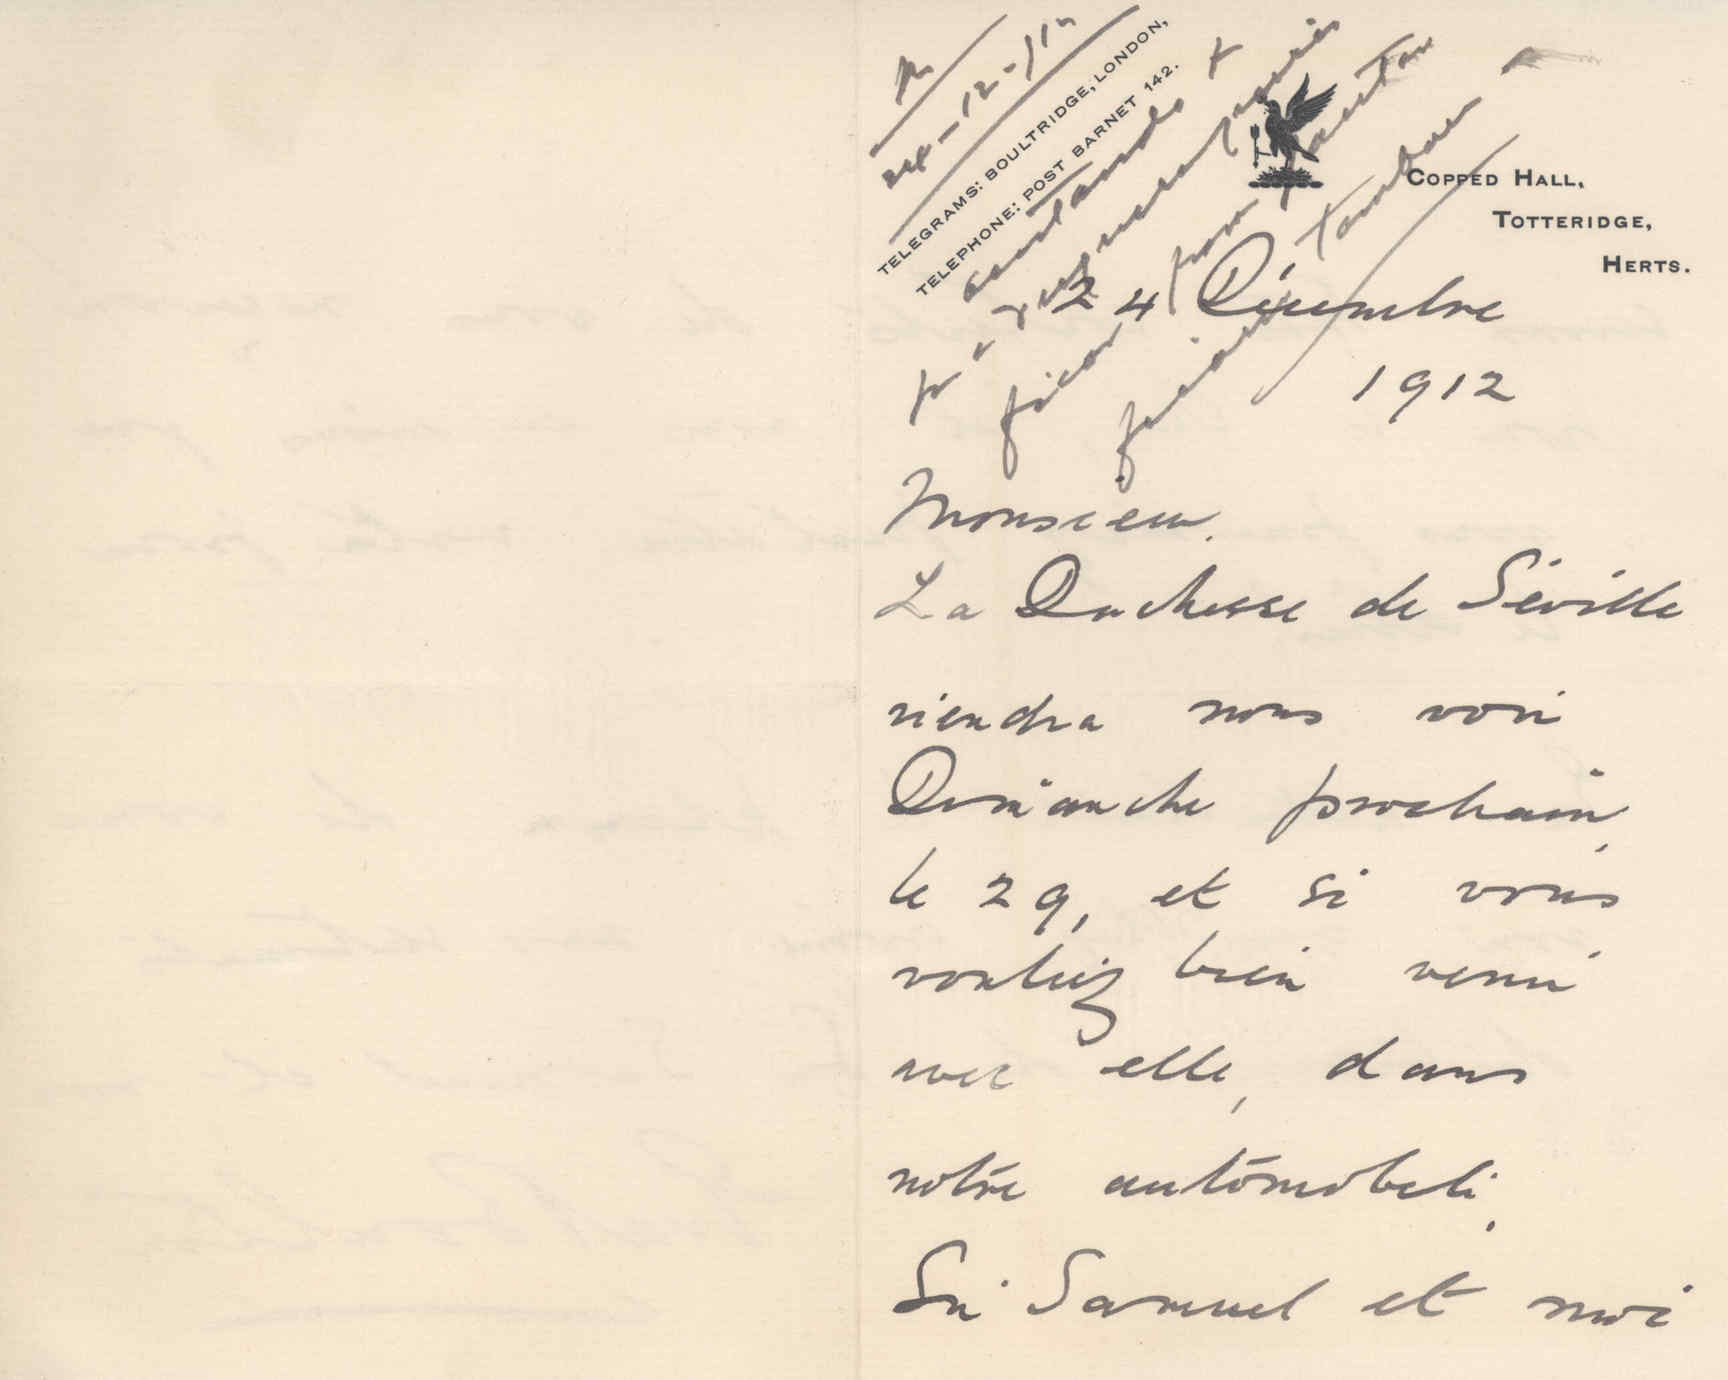 TELEGRAMS: BOULTRIDGE, LONDON,
TELEPHONE: POST BARNET 142.
COPPED HALL,
TOTTERIDGE,
HERTS.
24-12-912
24 Décembre
1912
Monsieur.
La Duchesse de Séville
viendra nous voir
Dimanche prochain,
le 29, et si vous
vouliez bien venir
avec elle, dans
notre automobile.
Sir Samuel et moi